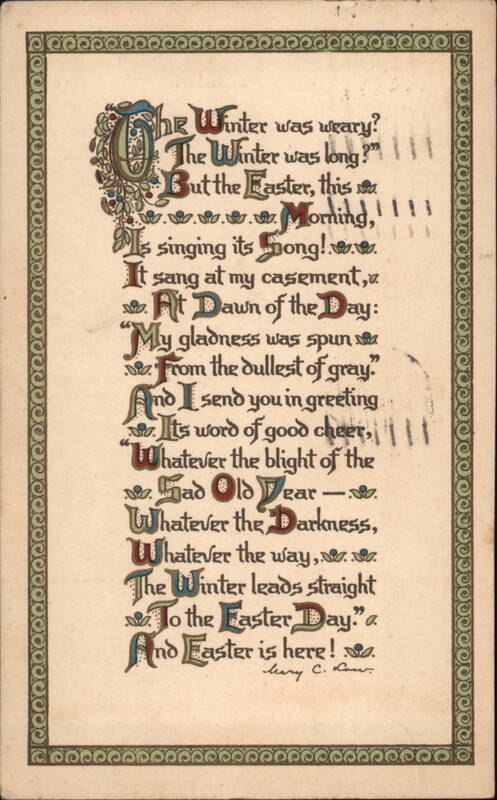 The Winter was weary?
The Winter was long?"
But the Easter, this
Morning,
Is singing its Song!
It sang at my casement,
At Dawn of the Day:
"My gladness was spun
From the dullest of gray."
And I send you in greeting
Its word of good cheer,
"Whatever the blight of the
Sad Old Year —
Whatever the Darkness,
Whatever the way,
The Winter leads straight
To the Easter Day."
And Easter is here!
Mary C. Low.